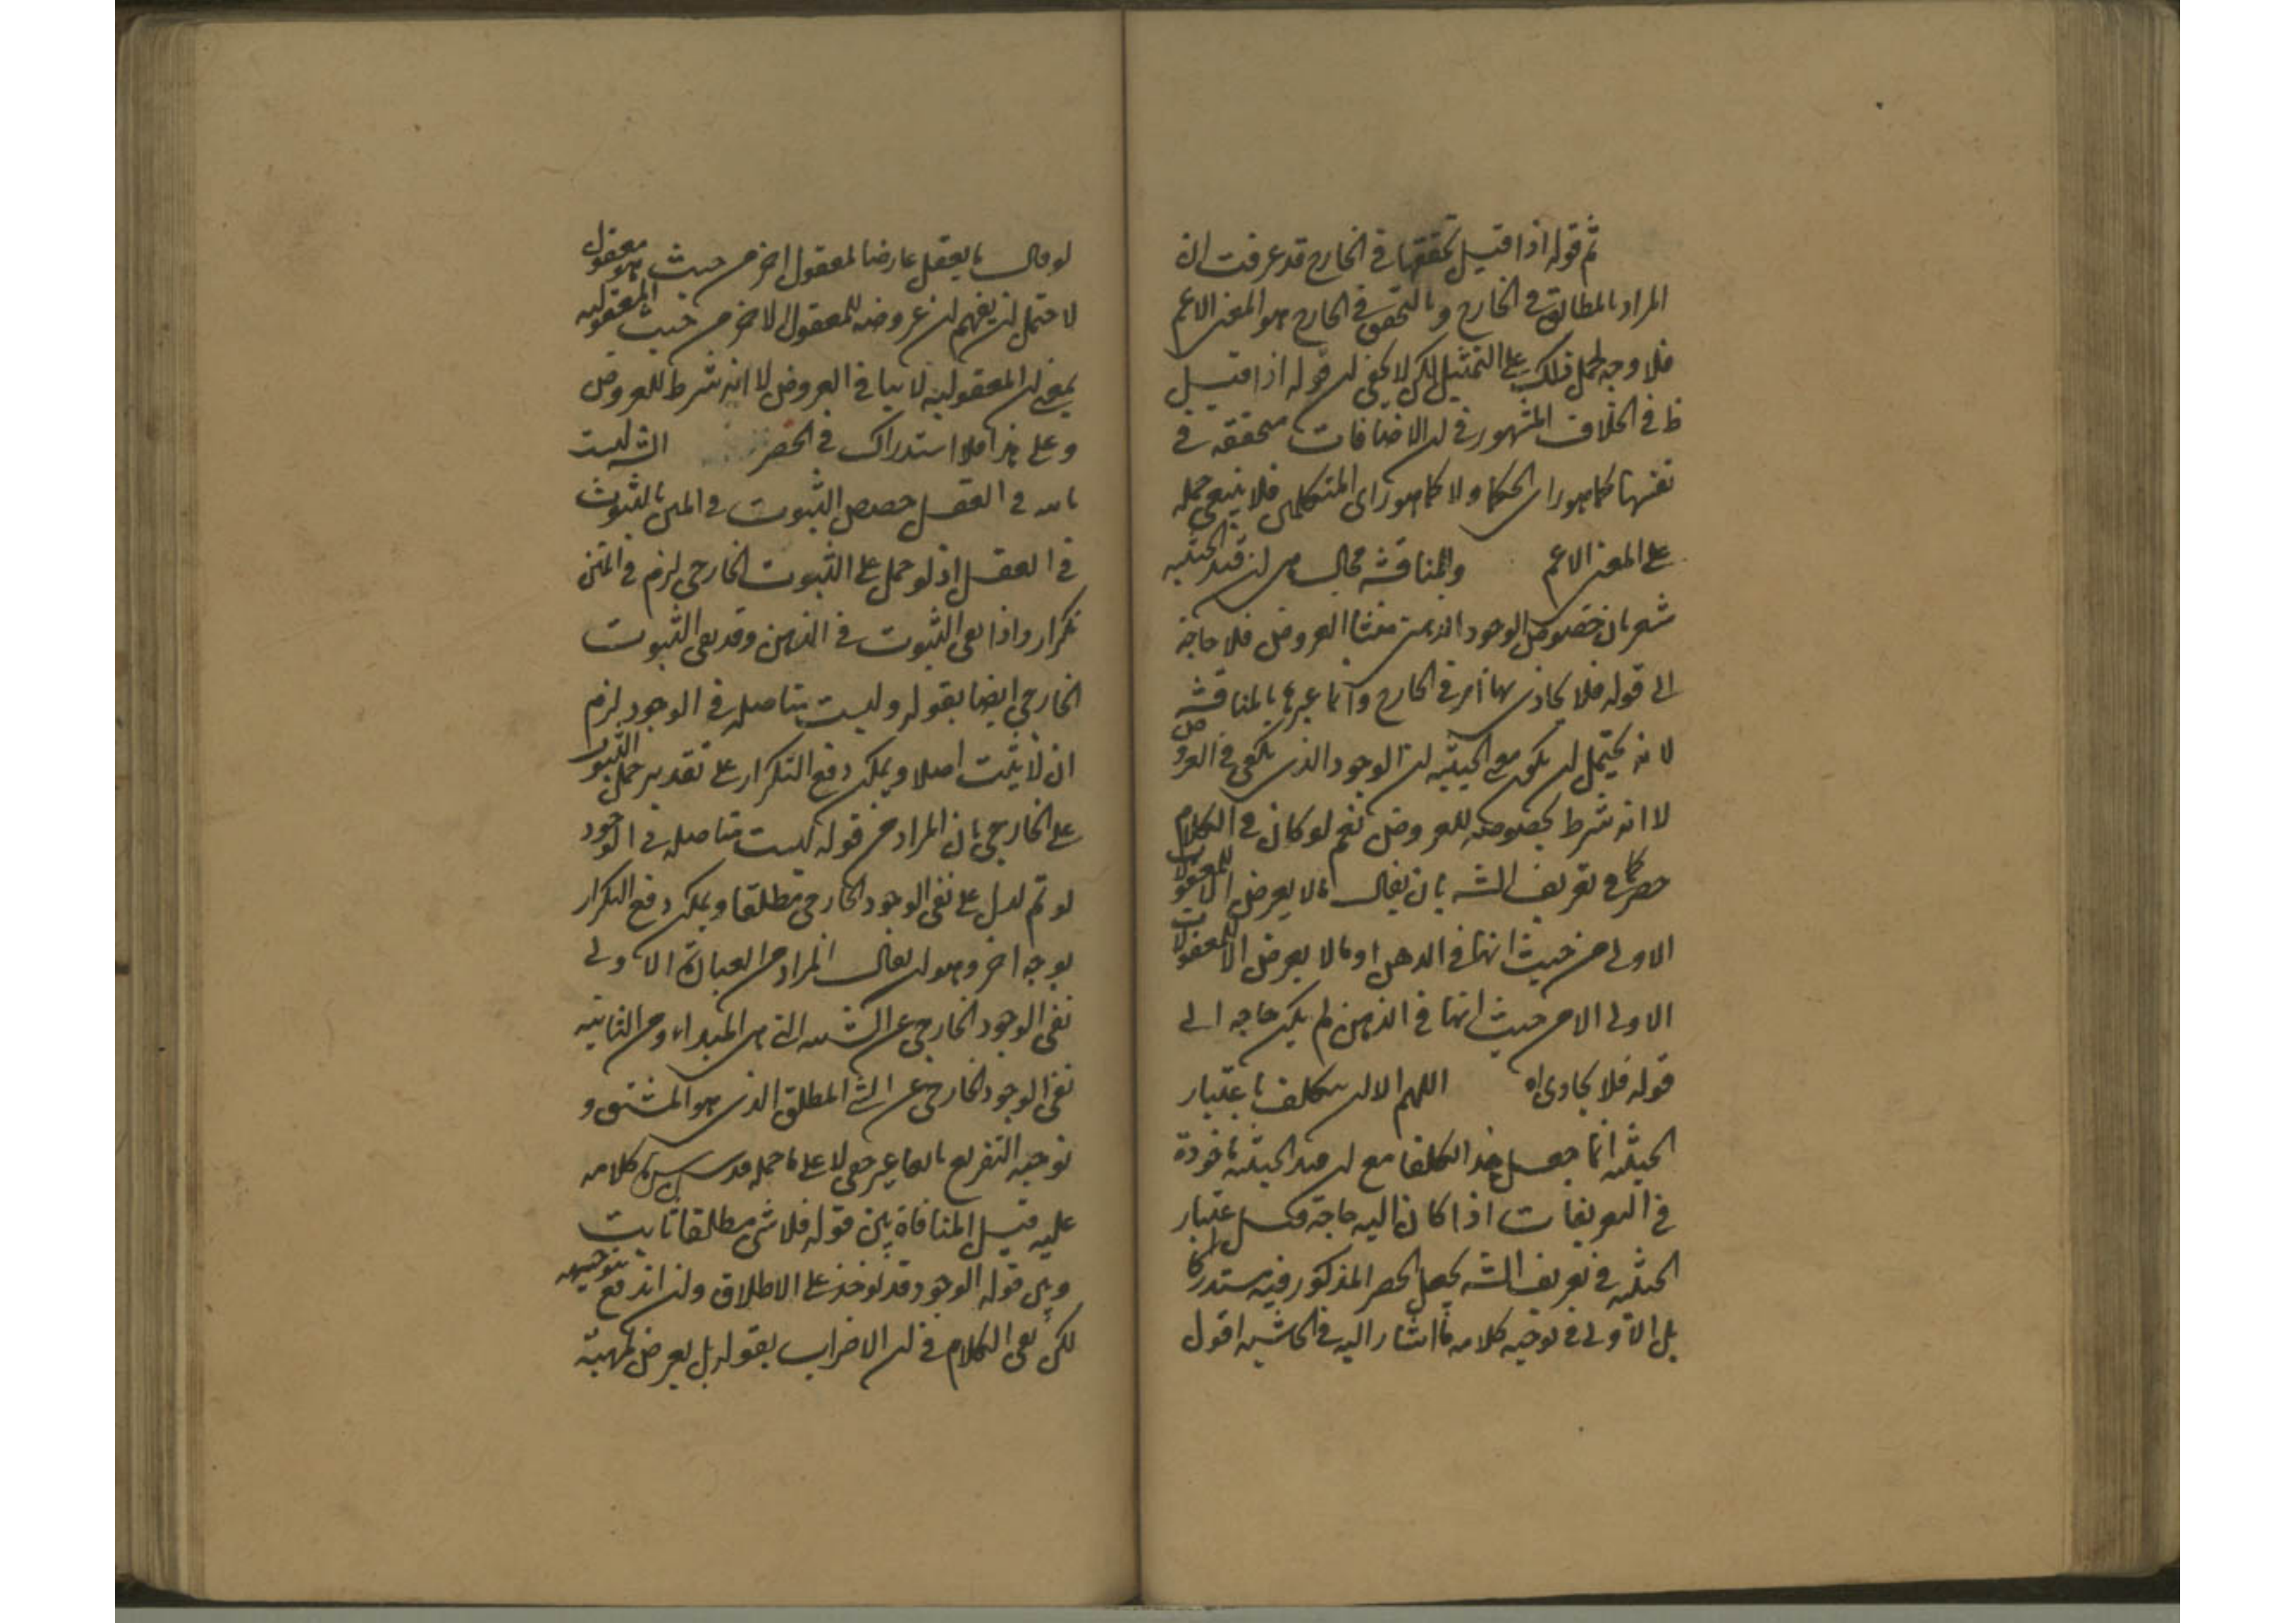 ثم قوله اذا قيل تحققها في الخارج قد عرفت ان
المراد بالمطابق في الخارج وبالتحقق في الخارج هو المعنى الاعم
فلا وجه لحمل ذلك على التمثيل لكن لا يخفى ان قوله اذا قيل
ظ في الخلاف المشهور في ان الاضافات متحققه في
نفسها كما هو راى الحكما ولا كما هو راى المتكلمين فلا ينبغي حمله
على المعنى الاعم وللمناقشه مجال هى ان قيد الحيثيه
شعر بان خصوص الوجود الذهنى منشا العروض فلا حاجة
الى قوله فلا يحاذى بها امر في الخارج وانما عبرها بالمناقشه
لانه يحتمل ان يكون مع الحيثيه ان الوجود الذى يكفى في العروض
لا انه شرط بخصوصه للعروض نعم لو كان في الكلام
حصر كما في تعريف الشه بان يقال ما لا يعرض الا للمعقولات
الاولى من حيث انها في الذهن او ما لا يعرض الا للمعقولات
الاولى الا من حيث انها في الذهن لم يكن حاجه الى
قوله فلا يحاذى اه اللهم الا ان يتكلف باعتبار
الحيثيه انما جعل هذا تكلفا مع ان قيد الحيثيه ماخوذة
في التعريفات اذا كان اليه حاجة فكل اعتبار
الحيثيه في تعريف الشه يجعل الحصر المذكور فيه مستدركا
بل الاولى في توجيه كلامه ما اشار اليه في الحاشيه اقول
لو قال ما يعقل عارضا لمعقول اخر من حيث هو معقول
لاحتمل ان يفهم ان عروضه للمعقول الاخر من حيث المعقوليه
بمعنى ان المعقولية لا ينافى العروض لا انه شرط للعروض
وعلى هذا فلا استدراك في الحصر الشه ليست
في العقل خصص الثبوت في المتن بالثبوت
في العقل اذ لو حمل على الثبوت الخارجي لزم في المتن
تكرار واذا نفى الثبوت في الذهن وقد نفى الثبوت
الخارجي ايضا بقوله وليست بمتاصله في الوجود لزم
ان لا يثبت اصلا ويمكن دفع التكرار على تقدير حمل الثبوت
على الخارجي بان المراد من قوله ليست متاصله في الوجود
لو تم لدل على نفى الوجود الخارجي مطلقا ويمكن دفع التكرار
بوجه اخر وهو ان يقال المراد من العبارة الاولى
نفى الوجود الخارجي عن الشيئيه التى هى المبداء ومن الثانيه
نفى الوجود الخارجي عن الشئ المطلق الذى هو المشتق و
توجيه التفريع لا على ما حمله قدس سره كلامه
عليه قيل المنافاة بين قوله فلا شئ مطلقا ثابت
وبين قوله الوجود قد يوخذ على الاطلاق وان اندفع بتوجيهه
لكن بقى الكلام في ان الاضراب بقوله بل يعرض لمهية